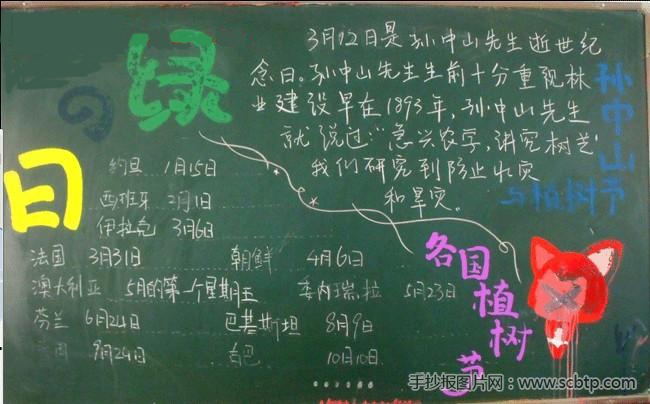 绿
的
日
3月12日是孙中山先生逝世纪
念日。孙中山先生生前十分重视林
业建设早在1893年,孙中山先生
就说过:"急兴农学,讲究树艺"
我们研究到防止水灾
和旱灾。
孙中山
与植树节
约旦 1月15日
西班牙 2月1日
伊拉克 3月6日
法国 3月31日 朝鲜 4月6日
澳大利亚 5月的第一个星期五 委内瑞拉 5月23日
芬兰 6月24日 巴基斯坦 8月9日
9月24日 古巴 10月10日
各国植树节
手抄报图片网:www.scbtp.com